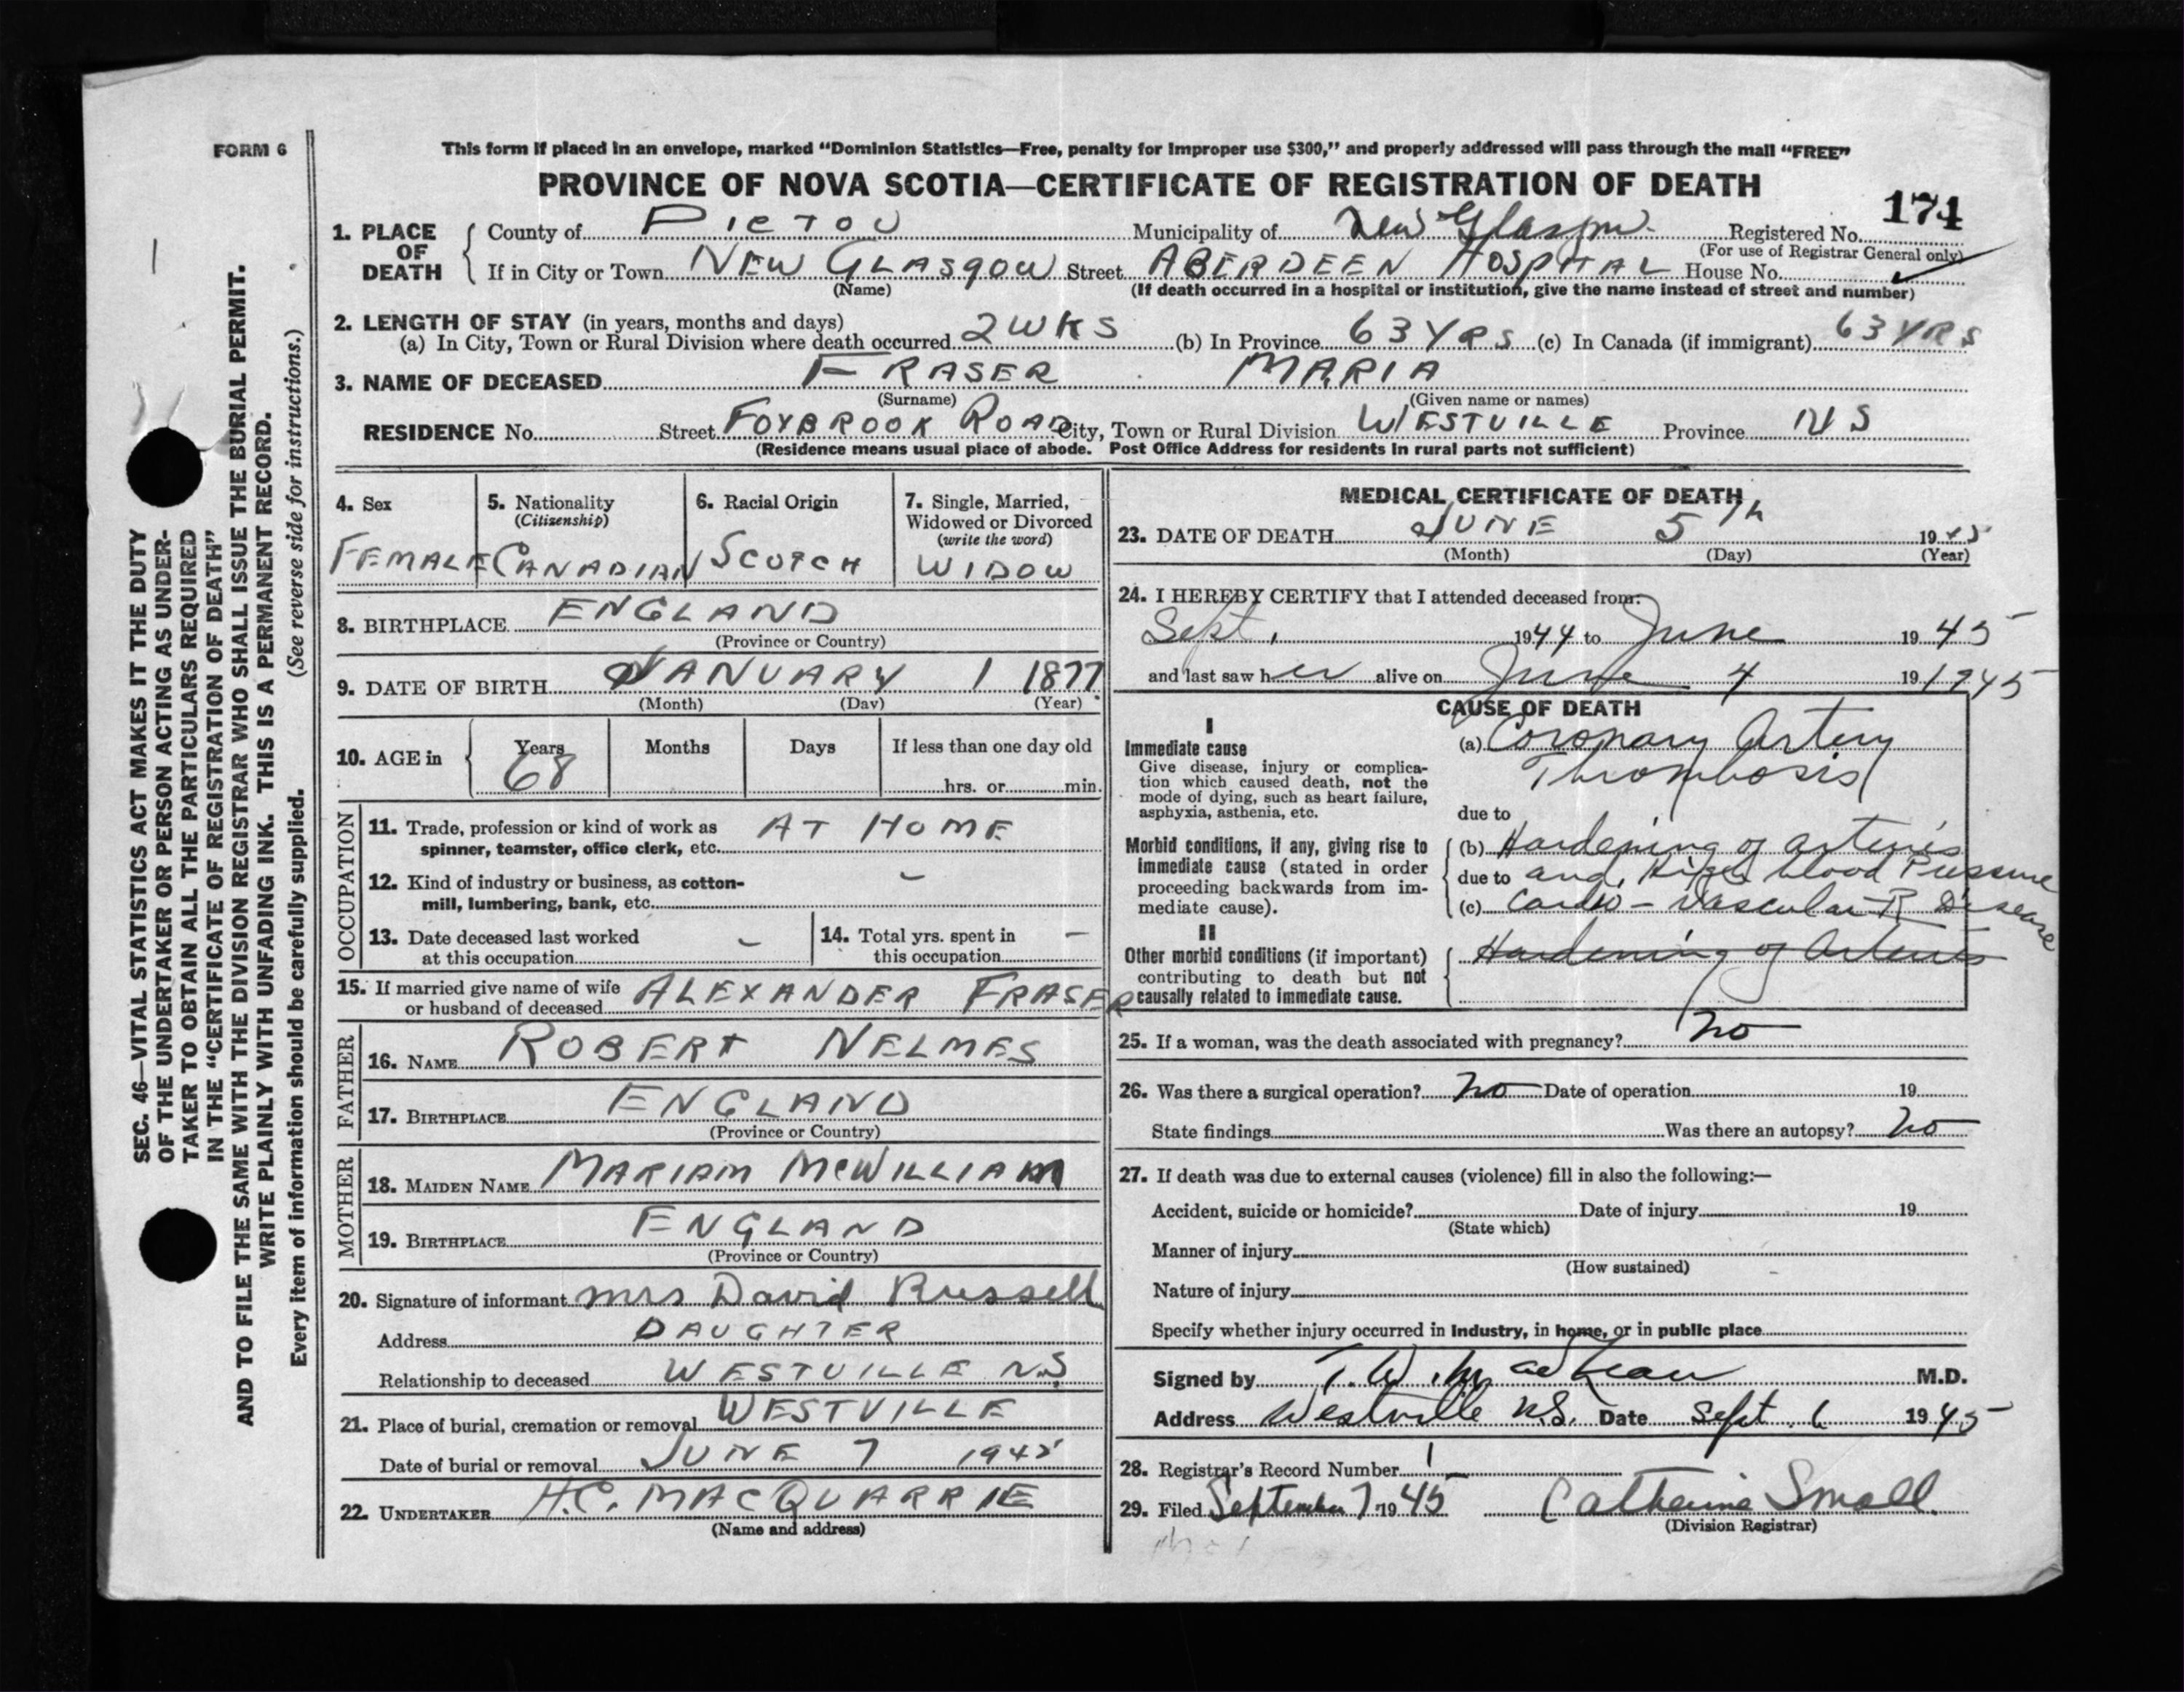 FORM 6
This form if placed in an envelope, marked “Dominion Statistics—Free, penalty for improper use $300,” and properly addressed will pass through the mail “FREE”
PROVINCE OF NOVA SCOTIA—CERTIFICATE OF REGISTRATION OF DEATH
174
1. PLACE OF DEATH
County of PICTOU Municipality of New Glasgow Registered No.
(For use of Registrar General only)
If in City or Town NEW GLASGOW Street ABERDEEN HOSPITAL House No.
(Name) (If death occurred in a hospital or institution, give the name instead of street and number)
2. LENGTH OF STAY (in years, months and days)
(a) In City, Town or Rural Division where death occurred 2 WKS (b) In Province 63 YRS (c) In Canada (if immigrant) 63 YRS
3. NAME OF DECEASED FRASER MARIA
(Surname) (Given name or names)
RESIDENCE No. Street FOXBROOK ROAD City, Town or Rural Division WESTVILLE Province N S
(Residence means usual place of abode. Post Office Address for residents in rural parts not sufficient)
4. Sex
FEMALE
5. Nationality
(Citizenship)
CANADIAN
6. Racial Origin
SCOTCH
7. Single, Married,
Widowed or Divorced
(write the word)
WIDOW
8. BIRTHPLACE ENGLAND
(Province or Country)
9. DATE OF BIRTH JANUARY 1 1877
(Month) (Day) (Year)
10. AGE in
Years Months Days If less than one day old
68 hrs. or min.
OCCUPATION
11. Trade, profession or kind of work as
spinner, teamster, office clerk, etc. AT HOME
12. Kind of industry or business, as cotton-
mill, lumbering, bank, etc. –
13. Date deceased last worked
at this occupation –
14. Total yrs. spent in
this occupation –
15. If married give name of wife
or husband of deceased ALEXANDER FRASER
FATHER
16. NAME ROBERT NELMES
17. BIRTHPLACE ENGLAND
(Province or Country)
MOTHER
18. MAIDEN NAME MARIAM MCWILLIAM
19. BIRTHPLACE ENGLAND
(Province or Country)
20. Signature of informant Mrs David Russell
Address DAUGHTER
Relationship to deceased WESTVILLE N.S
21. Place of burial, cremation or removal WESTVILLE
Date of burial or removal JUNE 7 1945
22. UNDERTAKER H.C. MACQUARRIE
(Name and address)
MEDICAL CERTIFICATE OF DEATH
23. DATE OF DEATH JUNE 5th 1945
(Month) (Day) (Year)
24. I HEREBY CERTIFY that I attended deceased from:
Sept, 1944 to June 19 45
and last saw her alive on June 4 19 1945
CAUSE OF DEATH
I
Immediate cause
Give disease, injury or complica-
tion which caused death, not the
mode of dying, such as heart failure,
asphyxia, asthenia, etc.
(a) Coronary Artery
Thrombosis
due to
Morbid conditions, if any, giving rise to
immediate cause (stated in order
proceeding backwards from im-
mediate cause).
(b) Hardening of arteries
due to and High blood Pressure
(c) Cardio-Vascular-R Disease
II
Other morbid conditions (if important)
contributing to death but not
causally related to immediate cause.
Hardening of Arteries
25. If a woman, was the death associated with pregnancy? no
26. Was there a surgical operation? no Date of operation 19
State findings Was there an autopsy? no
27. If death was due to external causes (violence) fill in also the following:—
Accident, suicide or homicide? Date of injury 19
(State which)
Manner of injury
(How sustained)
Nature of injury
Specify whether injury occurred in industry, in home, or in public place
Signed by T. W. MacLean M.D.
Address Westville N.S. Date Sept. 6 1945
28. Registrar's Record Number 1
29. Filed September 7 1945 Catherine Small
(Division Registrar)
SEC. 46—VITAL STATISTICS ACT MAKES IT THE DUTY
OF THE UNDERTAKER OR PERSON ACTING AS UNDER-
TAKER TO OBTAIN ALL THE PARTICULARS REQUIRED
IN THE “CERTIFICATE OF REGISTRATION OF DEATH”
AND TO FILE THE SAME WITH THE DIVISION REGISTRAR WHO SHALL ISSUE THE BURIAL PERMIT.
WRITE PLAINLY WITH UNFADING INK. THIS IS A PERMANENT RECORD.
Every item of information should be carefully supplied. (See reverse side for instructions.)